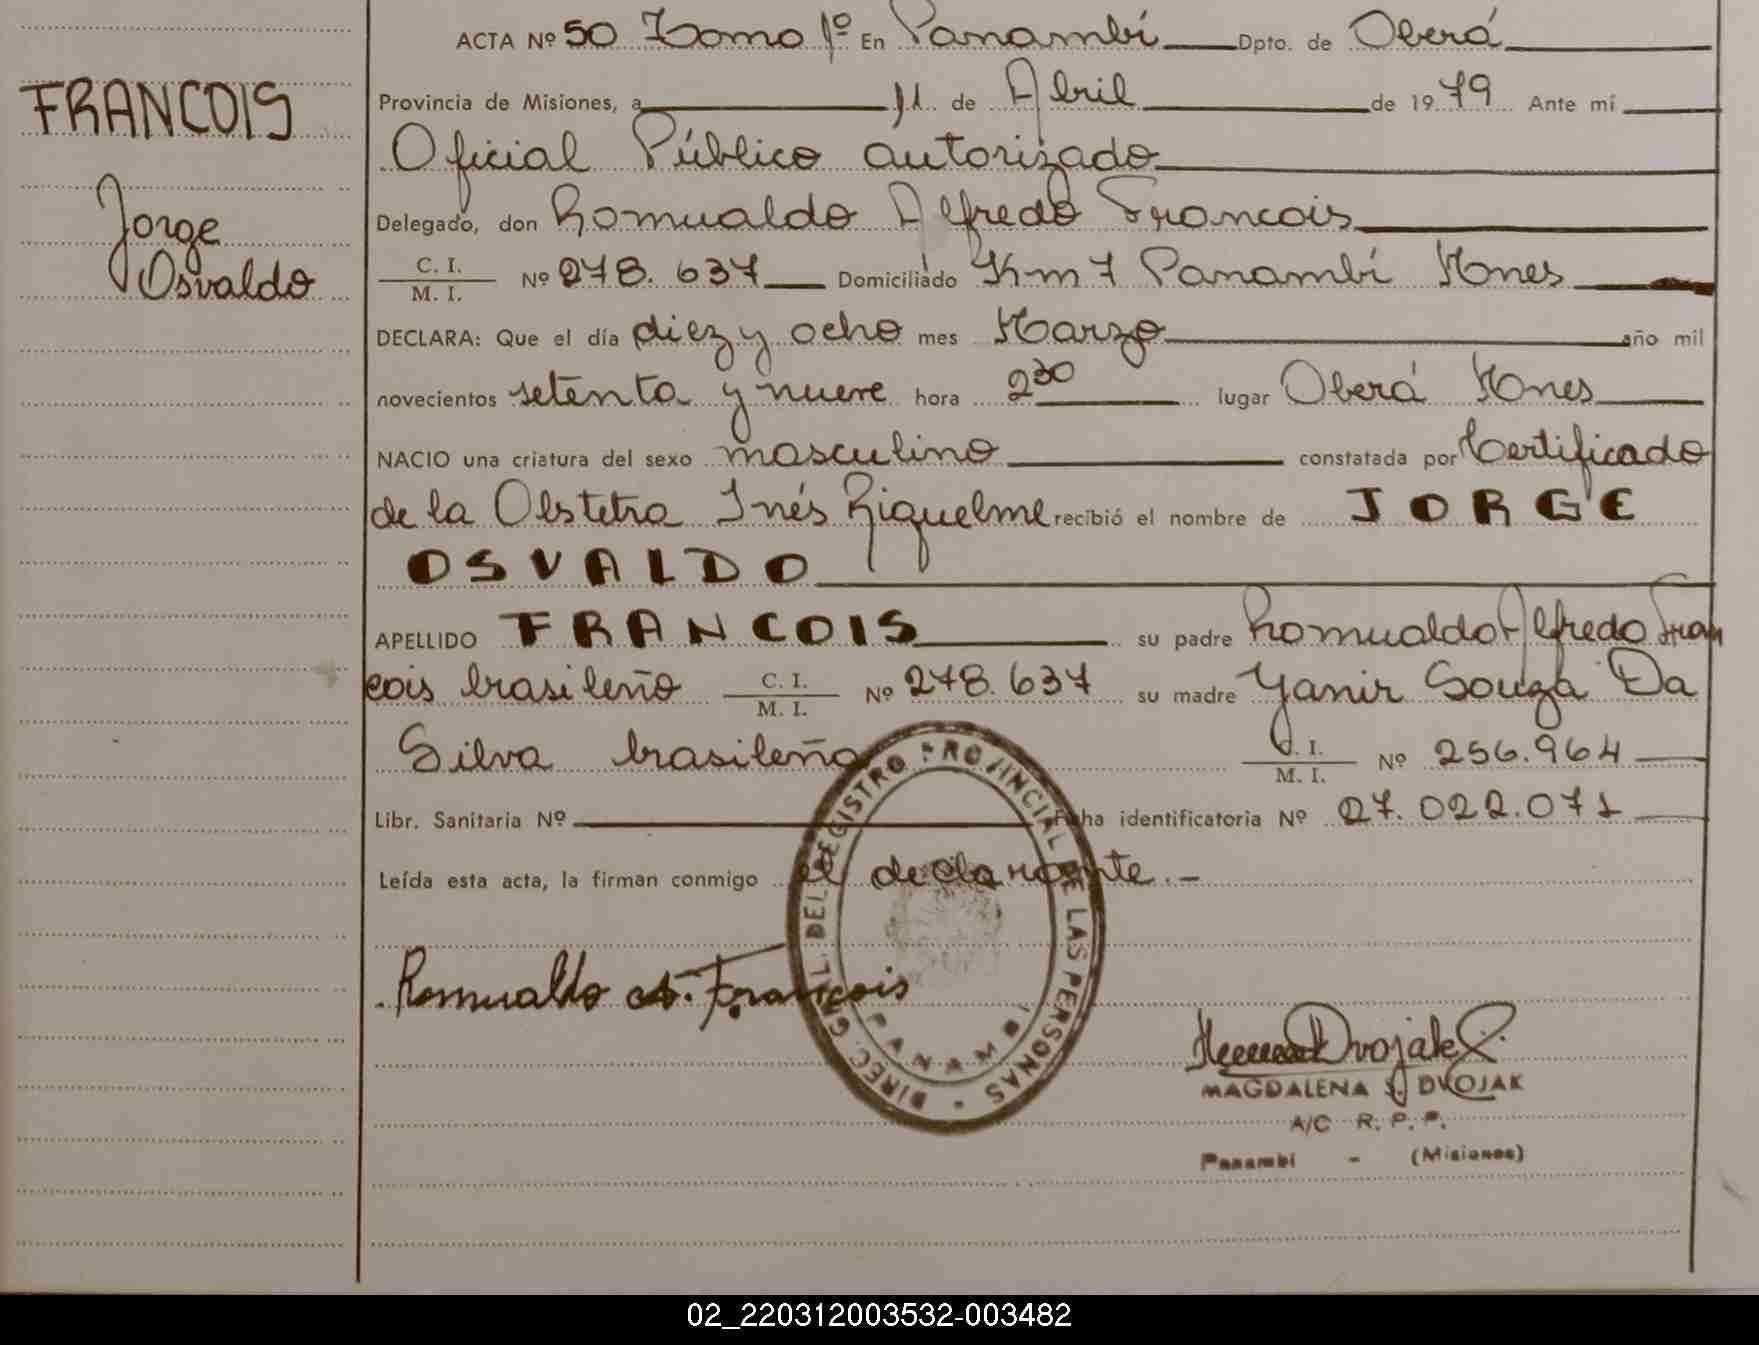 ACTA Nº 50 Tomo 1º En Panambí Dpto. de Oberá
FRANCOIS
Jorge
Osvaldo
Provincia de Misiones, a 11 de Abril de 1979 Ante mí
Oficial Público autorizado
Delegado, don Romualdo Alfredo Francois
C. I.
M. I. Nº 278.637 Domiciliado Km 7 Panambí Mnes
DECLARA: Que el día diez y ocho mes Marzo año mil
novecientos setenta y nueve hora 2 30 lugar Oberá Mnes
NACIO una criatura del sexo masculino constatada por Certificado
de la Obstetra Inés Riquelme recibió el nombre de JORGE
OSVALDO
APELLIDO FRANCOIS su padre Romualdo Alfredo Fran
cois brasileño C. I.
M. I. Nº 278.637 su madre Yanir Souza Da
Silva brasileña C. I.
M. I. Nº 256.964
Libr. Sanitaria Nº Ficha identificatoria Nº 27.022.071
Leída esta acta, la firman conmigo el declarante.-
Romualdo A. Francois
DIREC. GRAL. DEL REGISTRO PROVINCIAL DE LAS PERSONAS -
PANAMBI
Dvojak
MAGDALENA DVOJAK
A/C R. P. P.
Panambí - (Misiones)
02_220312003532-003482